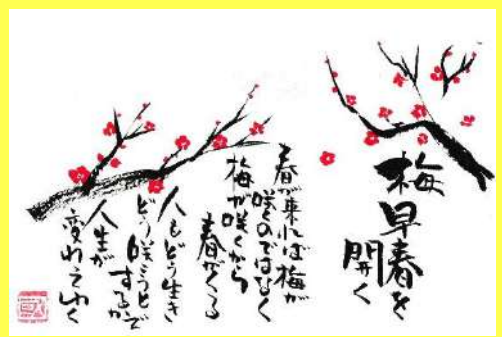 梅早春を
開く
春が来れば梅が
咲くのではなく
梅が咲くから
春がくる
人もどう生き
どう咲こうとで
するか
人生が
変わってゆく